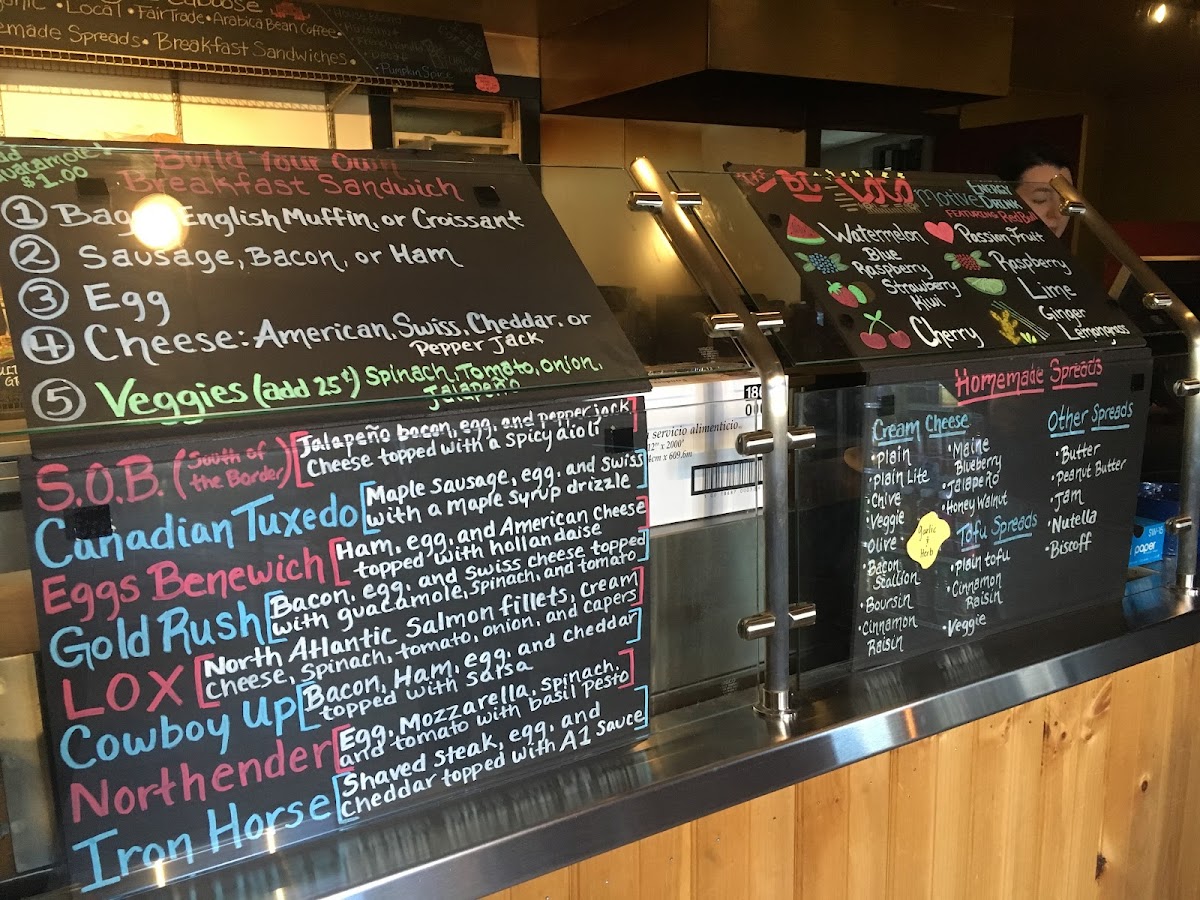 Local • Fair Trade • Arabica Bean Coffee
Spreads • Breakfast Sandwiches •
• Pumpkin Spice
$1.00
Build Your Own
Breakfast Sandwich
① English Muffin, or Croissant
② Sausage, Bacon, or Ham
③ Egg
④ Cheese: American, Swiss, Cheddar, or
Pepper Jack
⑤ Veggies (add 25¢) Spinach, Tomato, Onion,
Jalapeño
S.O.B. (South of the Border) [Jalapeño bacon, egg, and pepper jack]
Cheese topped with a spicy aioli
Canadian Tuxedo [Maple sausage, egg, and Swiss]
with a maple syrup drizzle
Eggs Benewich [Ham, egg, and American cheese]
topped with hollandaise
Gold Rush [Bacon, egg, and Swiss cheese topped]
with guacamole, spinach, and tomato
LOX [North Atlantic Salmon fillets, cream]
Cheese, spinach, tomato, onion, and capers
Cowboy Up [Bacon, Ham, egg, and cheddar]
topped with salsa
Northender [Egg, Mozzarella, spinach,]
and tomato with basil pesto
Iron Horse [Shaved steak, egg, and]
Cheddar topped with A1 sauce
servicio alimenticio.
12" x 2000'
LOCO
Motive ENERGY DRINK
FEATURING Red Bull
Watermelon
Blue
Raspberry
Strawberry
Kiwi
Cherry
Passion Fruit
Raspberry
Lime
Ginger
Lemongrass
Homemade Spreads
Cream Cheese
• Plain
• Plain Lite
• Chive
• Veggie
• Olive
• Bacon
Scallion
• Boursin
• Cinnamon
Raisin
• Maine
Blueberry
• Jalapeño
• Honey Walnut
Garlic
+
Herb
Tofu Spreads
• Plain tofu
• Cinnamon
Raisin
• Veggie
Other Spreads
• Butter
• Peanut Butter
• Jam
• Nutella
• Biscoff
paper